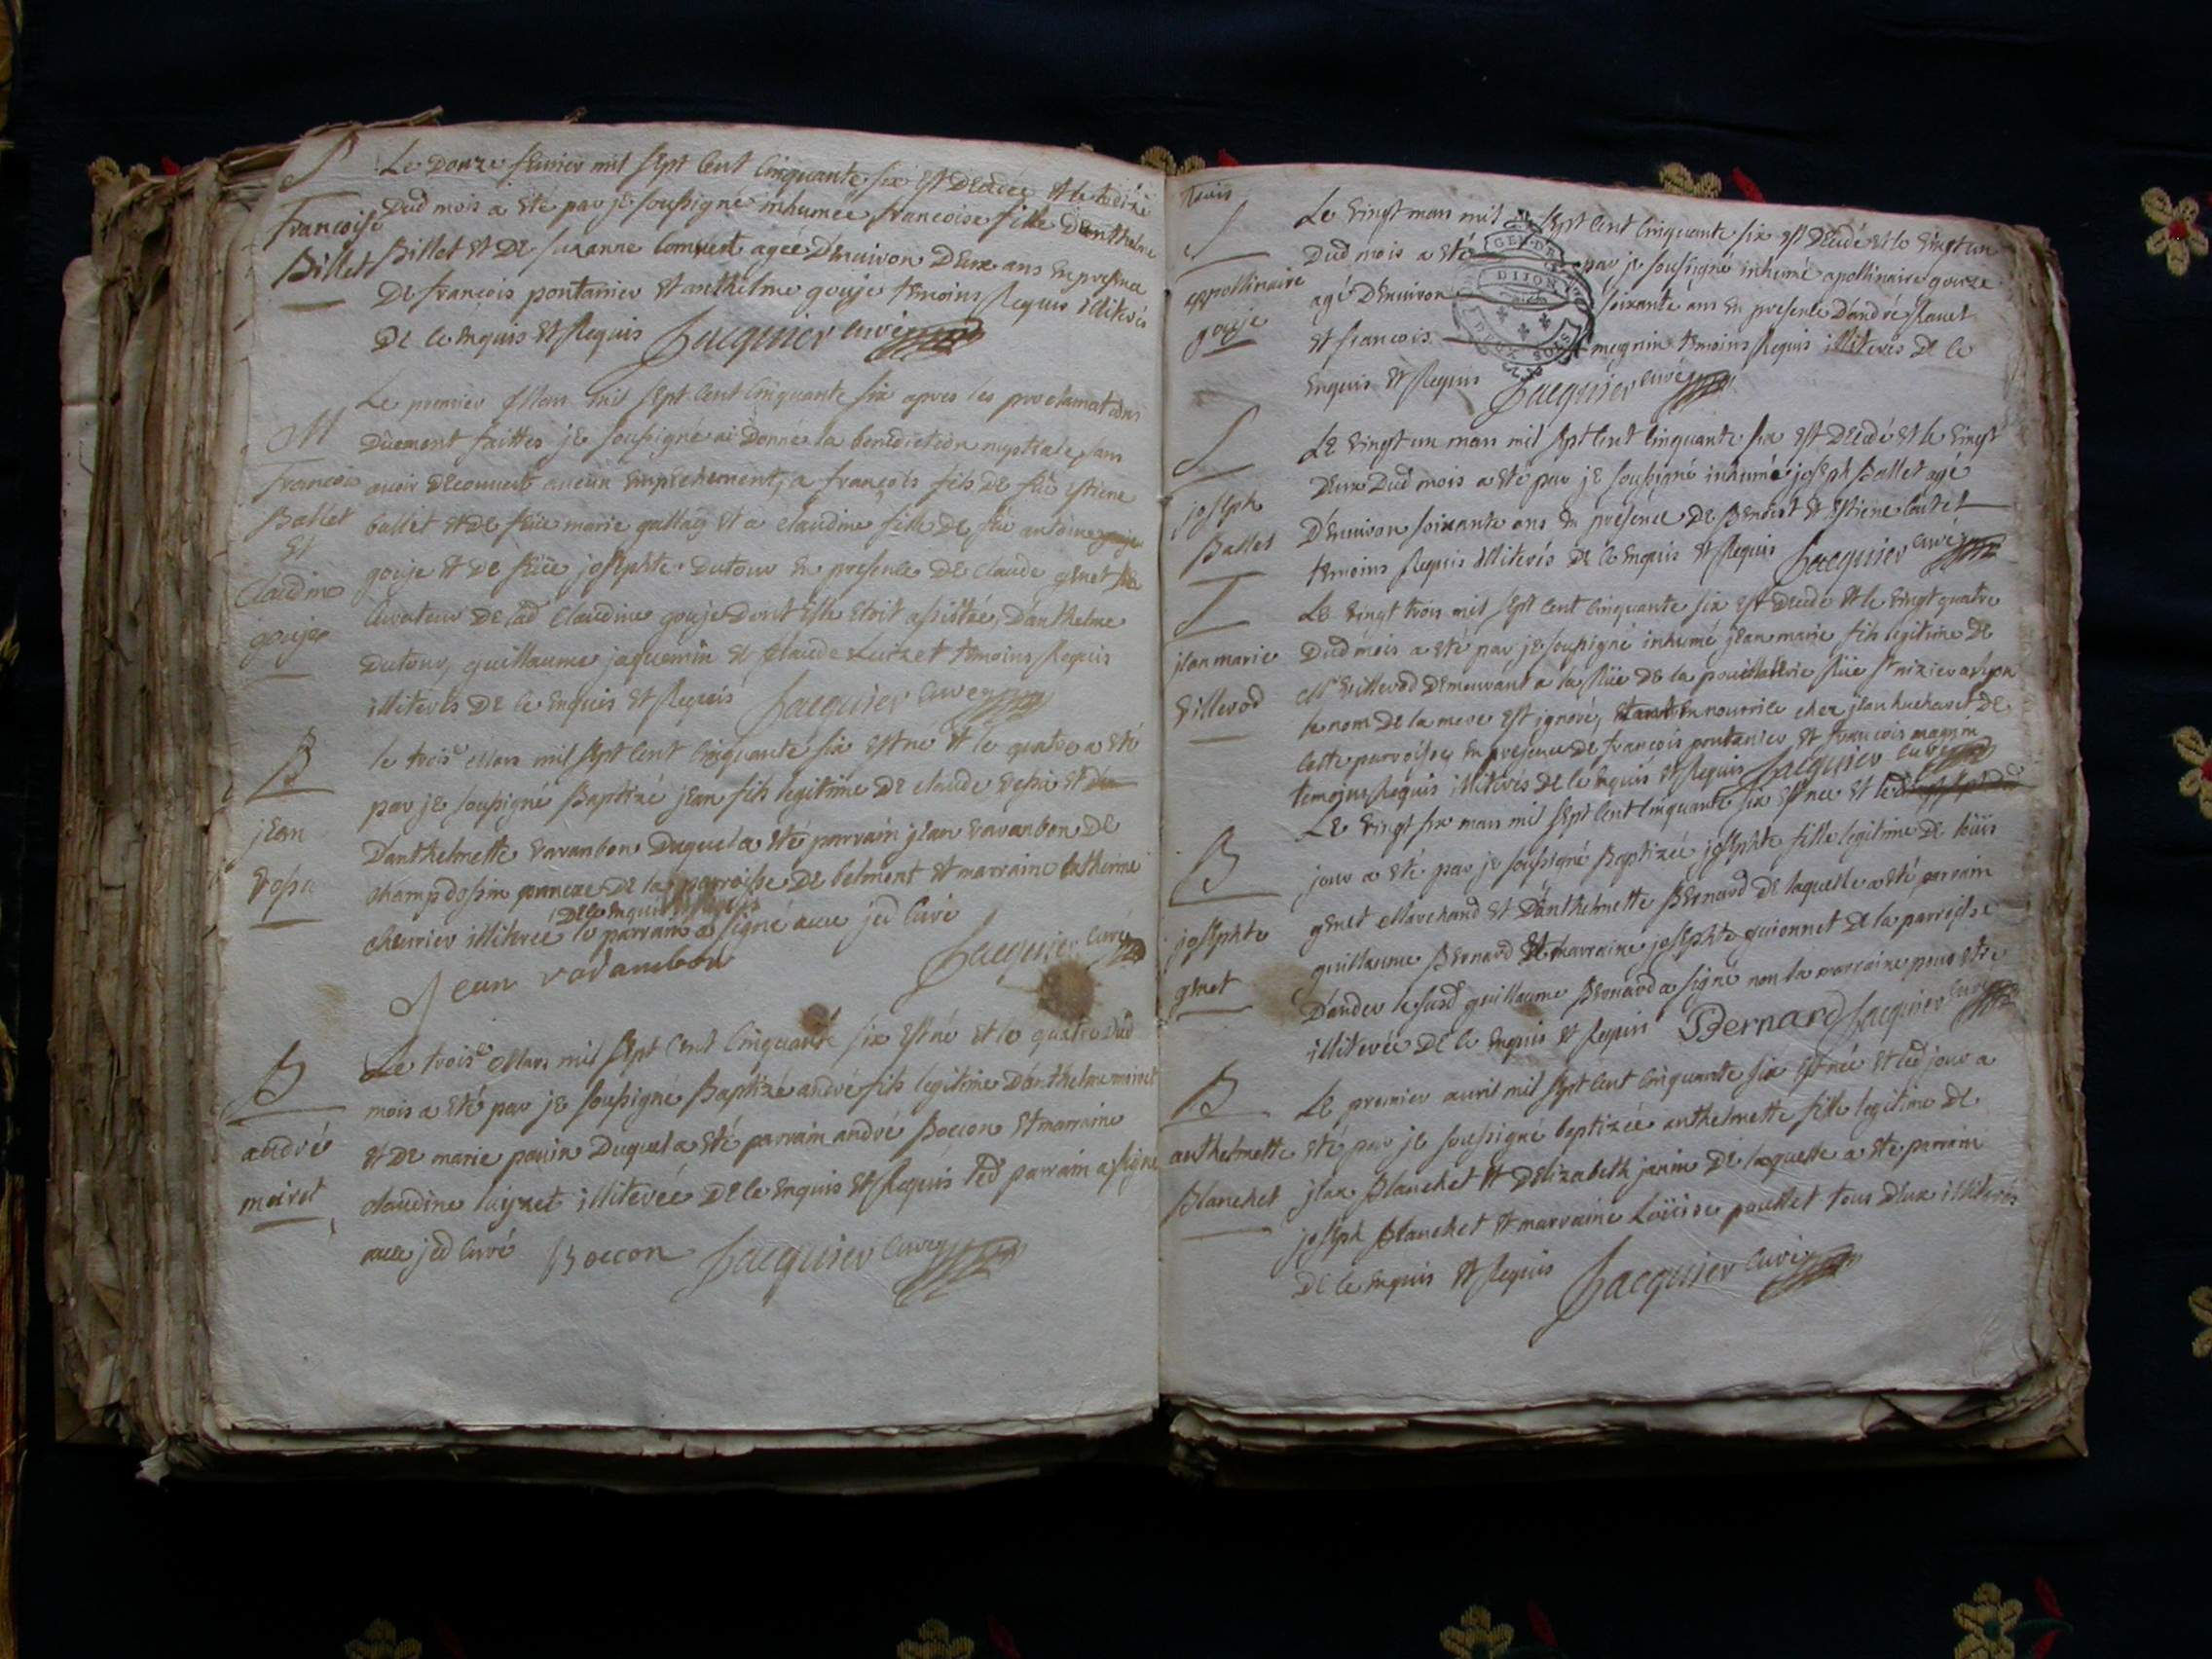 S
Le Douze feurier mil sept Cent Cinquante six est Decedée et le treize
Francoise
Dud mois a été par je soussigné inhumée francoise fille Danthelme
Billet
Billet et De suzanne Comvert agée D'enuiron Deux ans En presence
De francois pontanier et anthelme gouje temoins Requis illiterés
De Ce Enquis et Requis Jacquier Curé
Le premier Mars mil sept Cent Cinquante six apres les proclamations
M
Dûement faittes je soussigné ai Donné la benediction nuptiale, sans
Francois
auoir Decouuert aucun Empechement, a françois fils De feu estiene
Ballet
ballet et De feüe marie gallay et a claudine fille De feu antoine
Et
gouje et De feüe josephte Dutour En presence De Claude genet
Claudine
Curateur De lad Claudine gouje Dont Elle etoit assistée, D'anthelme
gouje
Dutour, guillaume jaquemin et Claude Luizet temoins Requis
illiterés De Ce Enquis et Requis Jacquier Curé
B
le trois Mars mil sept Cent Cinquante six est né et le quatre a eté
par je soussigné Baptizé jean fils legitime De claude
jean
D'anthelmette varanbon Duquel a eté parrain jean varanbon De
champdossin annexe De la parroisse De belmont et marraine Catherine
De Ce Enquise et Requise
cheurier illiterée le parrain a signé auec jed Curé
Jean varanbon Jacquier Curé
B
Le trois Mars mil sept Cent Cinquante six est né et le quatre Dud
mois a eté par je soussigné Baptizé andré fils legitime D'anthelme moiret
andré
et De marie pauin Duquel a eté parrain andré Boccon et marraine
moiret
claudine luyzet illiterée De Ce Enquis et Requis led parrain a signé
auec jed Curé Boccon Jacquier Curé
S
Le Vingt mars mil sept Cent Cinquante six est Decedé et le Vingt un
Dud mois a eté par je soussigné inhumé apollinaire gouze
appollinaire
agé D'enuiron soixante ans En presence D'andré Rauet
gouje
et francois megnin temoins Requis illiterés De Ce
Enquis et Requis Jacquier Curé
GEN. DE
DIJON
DEUX SOLS
S
Le Vingt un mars mil sept Cent Cinquante six est Decedé et le Vingt
Deux Dud mois a eté par je soussigné inhumé joseph Ballet agé
joseph
D'enuiron soixante ans En presence De Benoist et Estiene Cutet
Ballet
temoins Requis illiterés De Ce Enquis et Requis Jacquier Curé
S
Le Vingt trois mil sept Cent Cinquante six est Decedé et le Vingt quatre
jean marie
Dud mois a eté par je soussigné inhumé jean marie fils legitime De
Villerod
Mr Villerod Demeurant a la Rüe De la poullaillerie Rüe st nizier a lyon
le nom De la mere est ignoré, Etant En nourrice chez jean huchard De
Cette parroisse En presence De francois pontanier et francois magnin
temoins Requis illiterés De Ce Enquis et Requis Jacquier Curé
Le Vingt six mars mil sept Cent Cinquante six est née et led
B
jour a eté par je soussigné Baptizée josephte fille legitime De loüis
genet Marchand et D'anthelmette Bernard De laquelle a eté parrain
josephte
guillaume Bernard Et marraine josephte guionnet De la parroisse
genet
D'ander le susd guillaume Bernard a signé non la marraine pour etre
illiterée De Ce Enquis et Requis Bernard Jacquier Curé
B
Le premier auril mil sept Cent Cinquante six est née et led jour a
anthelmette
eté par je soussigné baptizée anthelmette fille legitime De
Blanchet
jean Blanchet et D'Elizabeth janin De laquelle a eté parrain
joseph Blanchet et marraine Loüise poullet tous Deux illiterés
De Ce Enquis et Requis Jacquier Curé